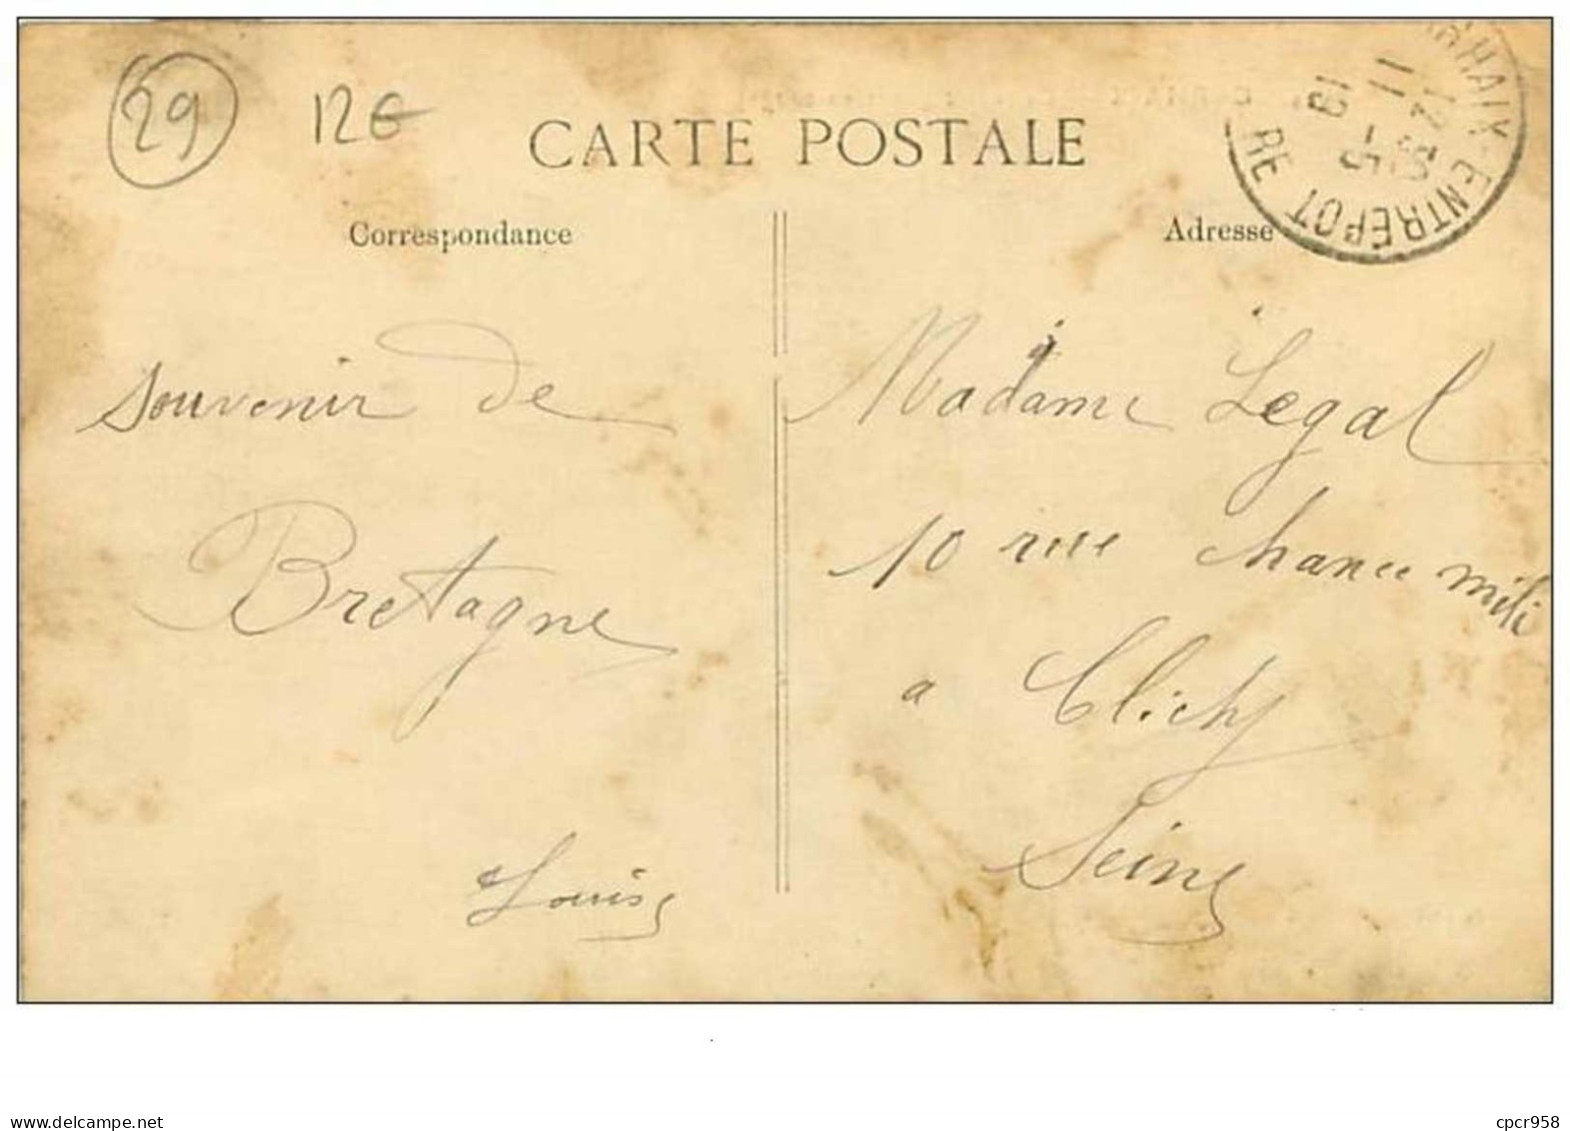 29
12€
CARTE POSTALE
Correspondance
Adresse
RHAIX-ENTREPOT RE
souvenir de
Bretagne
Louise
Madame Legal
10 rue chance mili
a Clichy
Seine
www.delcampe.net
cpcr958